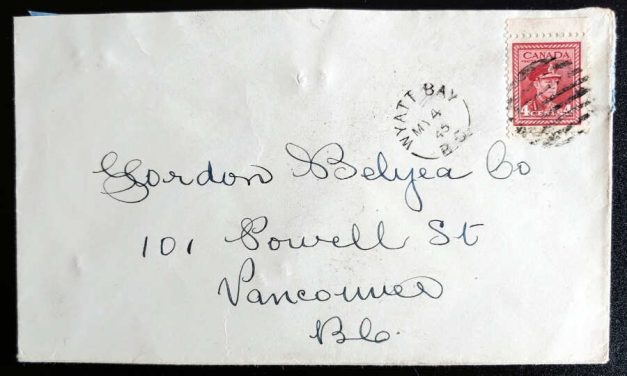 CANADA
4 CENTS 4
WYATT BAY
MY 4
45
B.C.
Gordon Belyea Co
101 Powell St
Vancouver
B.C.